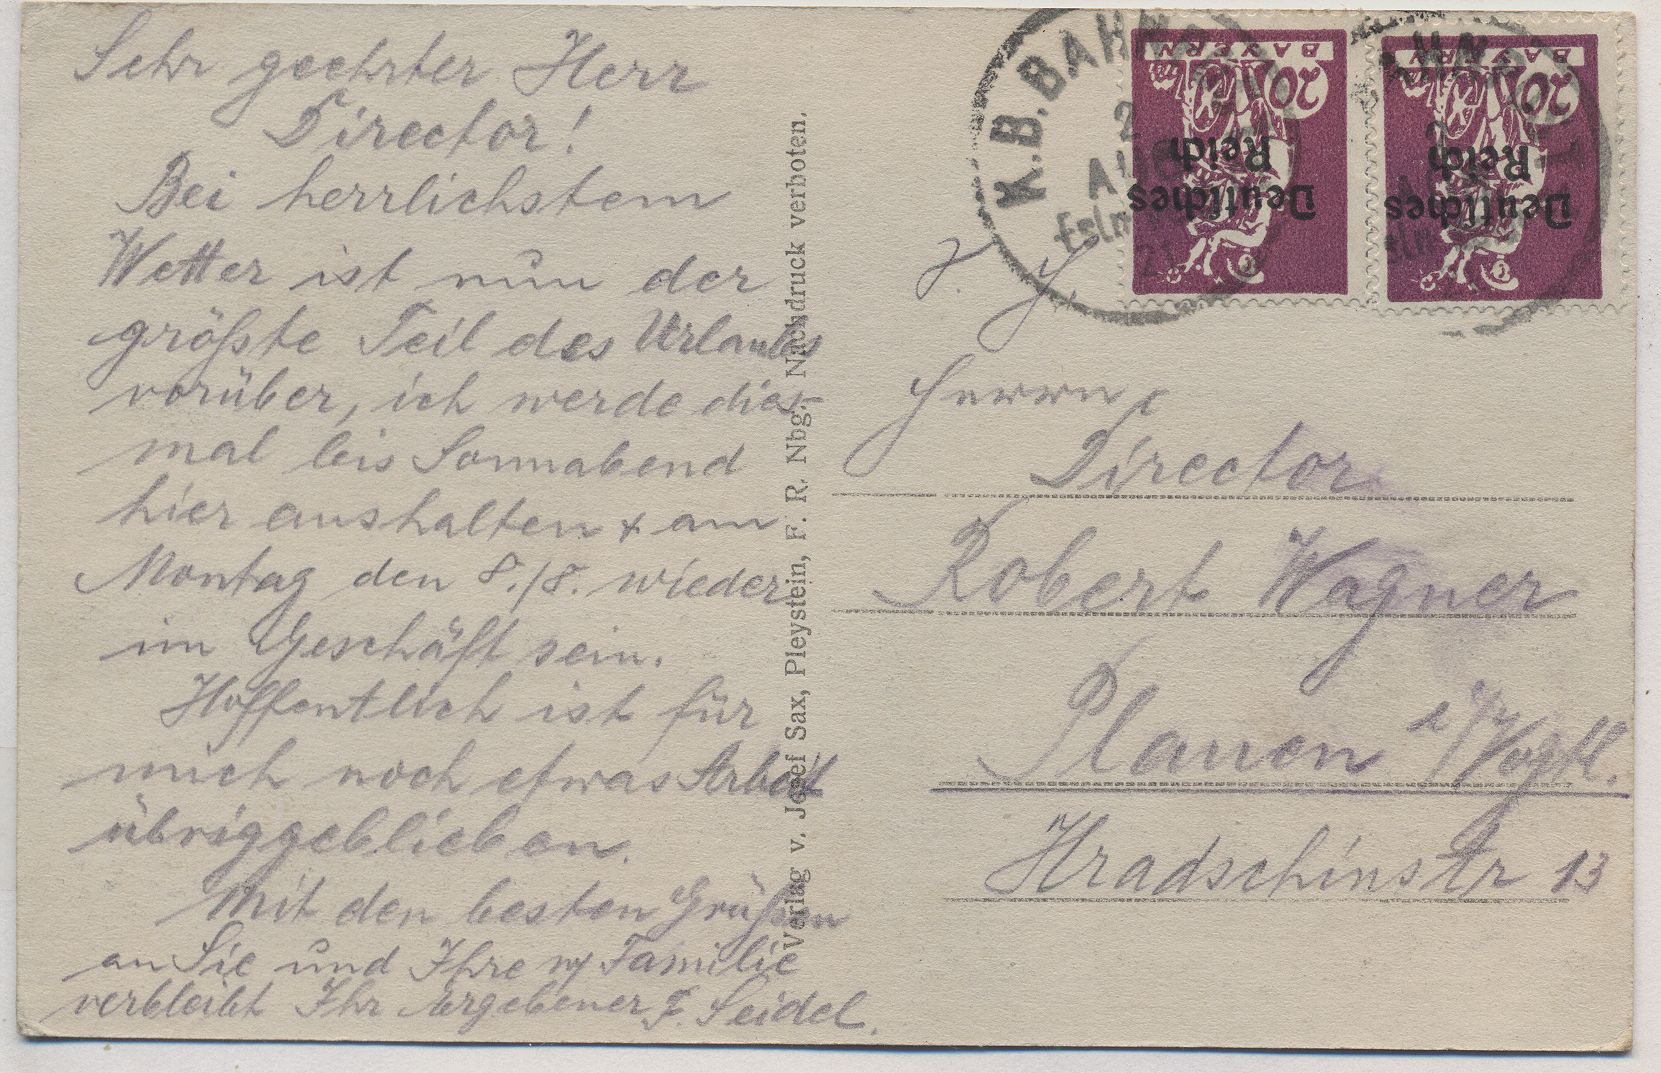 Sehr geehrter Herr
Director!
Bei herrlichstem
Wetter ist nun der
größte Teil des Urlaubs
vorüber, ich werde dies-
mal bis Sonnabend
hier aushalten + am
Montag den 8./8. wieder
im Geschäft sein.
Hoffentlich ist für
mich noch etwas Arbeit
übriggeblieben.
Mit den besten Grüßen
an Sie und Ihre w. Familie
verbleibt Ihr ergebener F. Seidel.
Verlag v. Josef Sax, Pleystein, F. R. Nbg. Nachdruck verboten.
K.B.BAHNPOST
2
AUG
21
BAYERN
20
Deutsches
Reich
BAYERN
20
Deutsches
Reich
Herrn
Director
Robert Wagner
Plauen i/Vogtl.
Hradschinstr 13